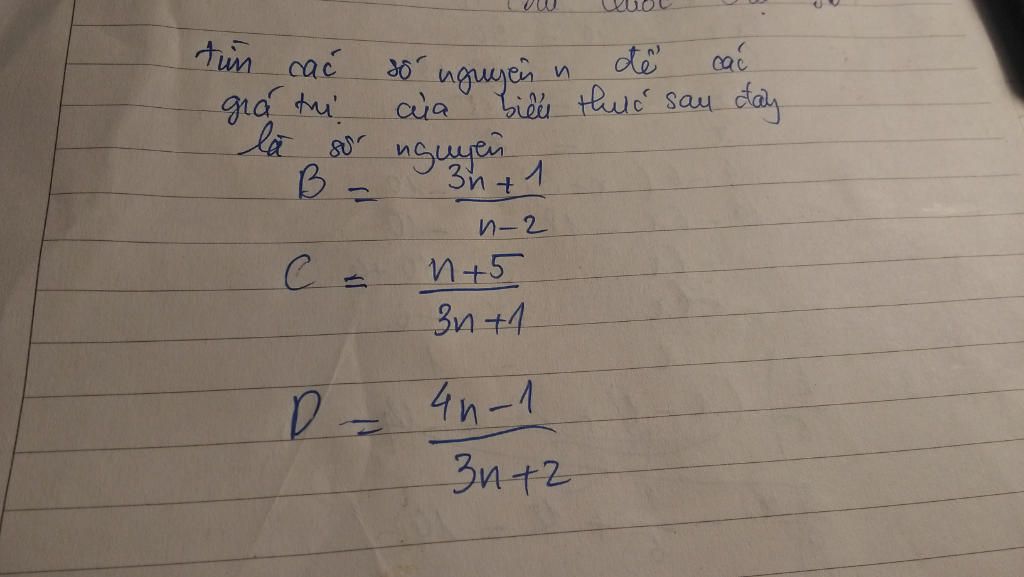 tìm các số nguyên n để các
giá trị của biểu thức sau đây
là số nguyên
B = \frac{3n+1}{n-2}
C = \frac{n+5}{3n+1}
D = \frac{4n-1}{3n+2}